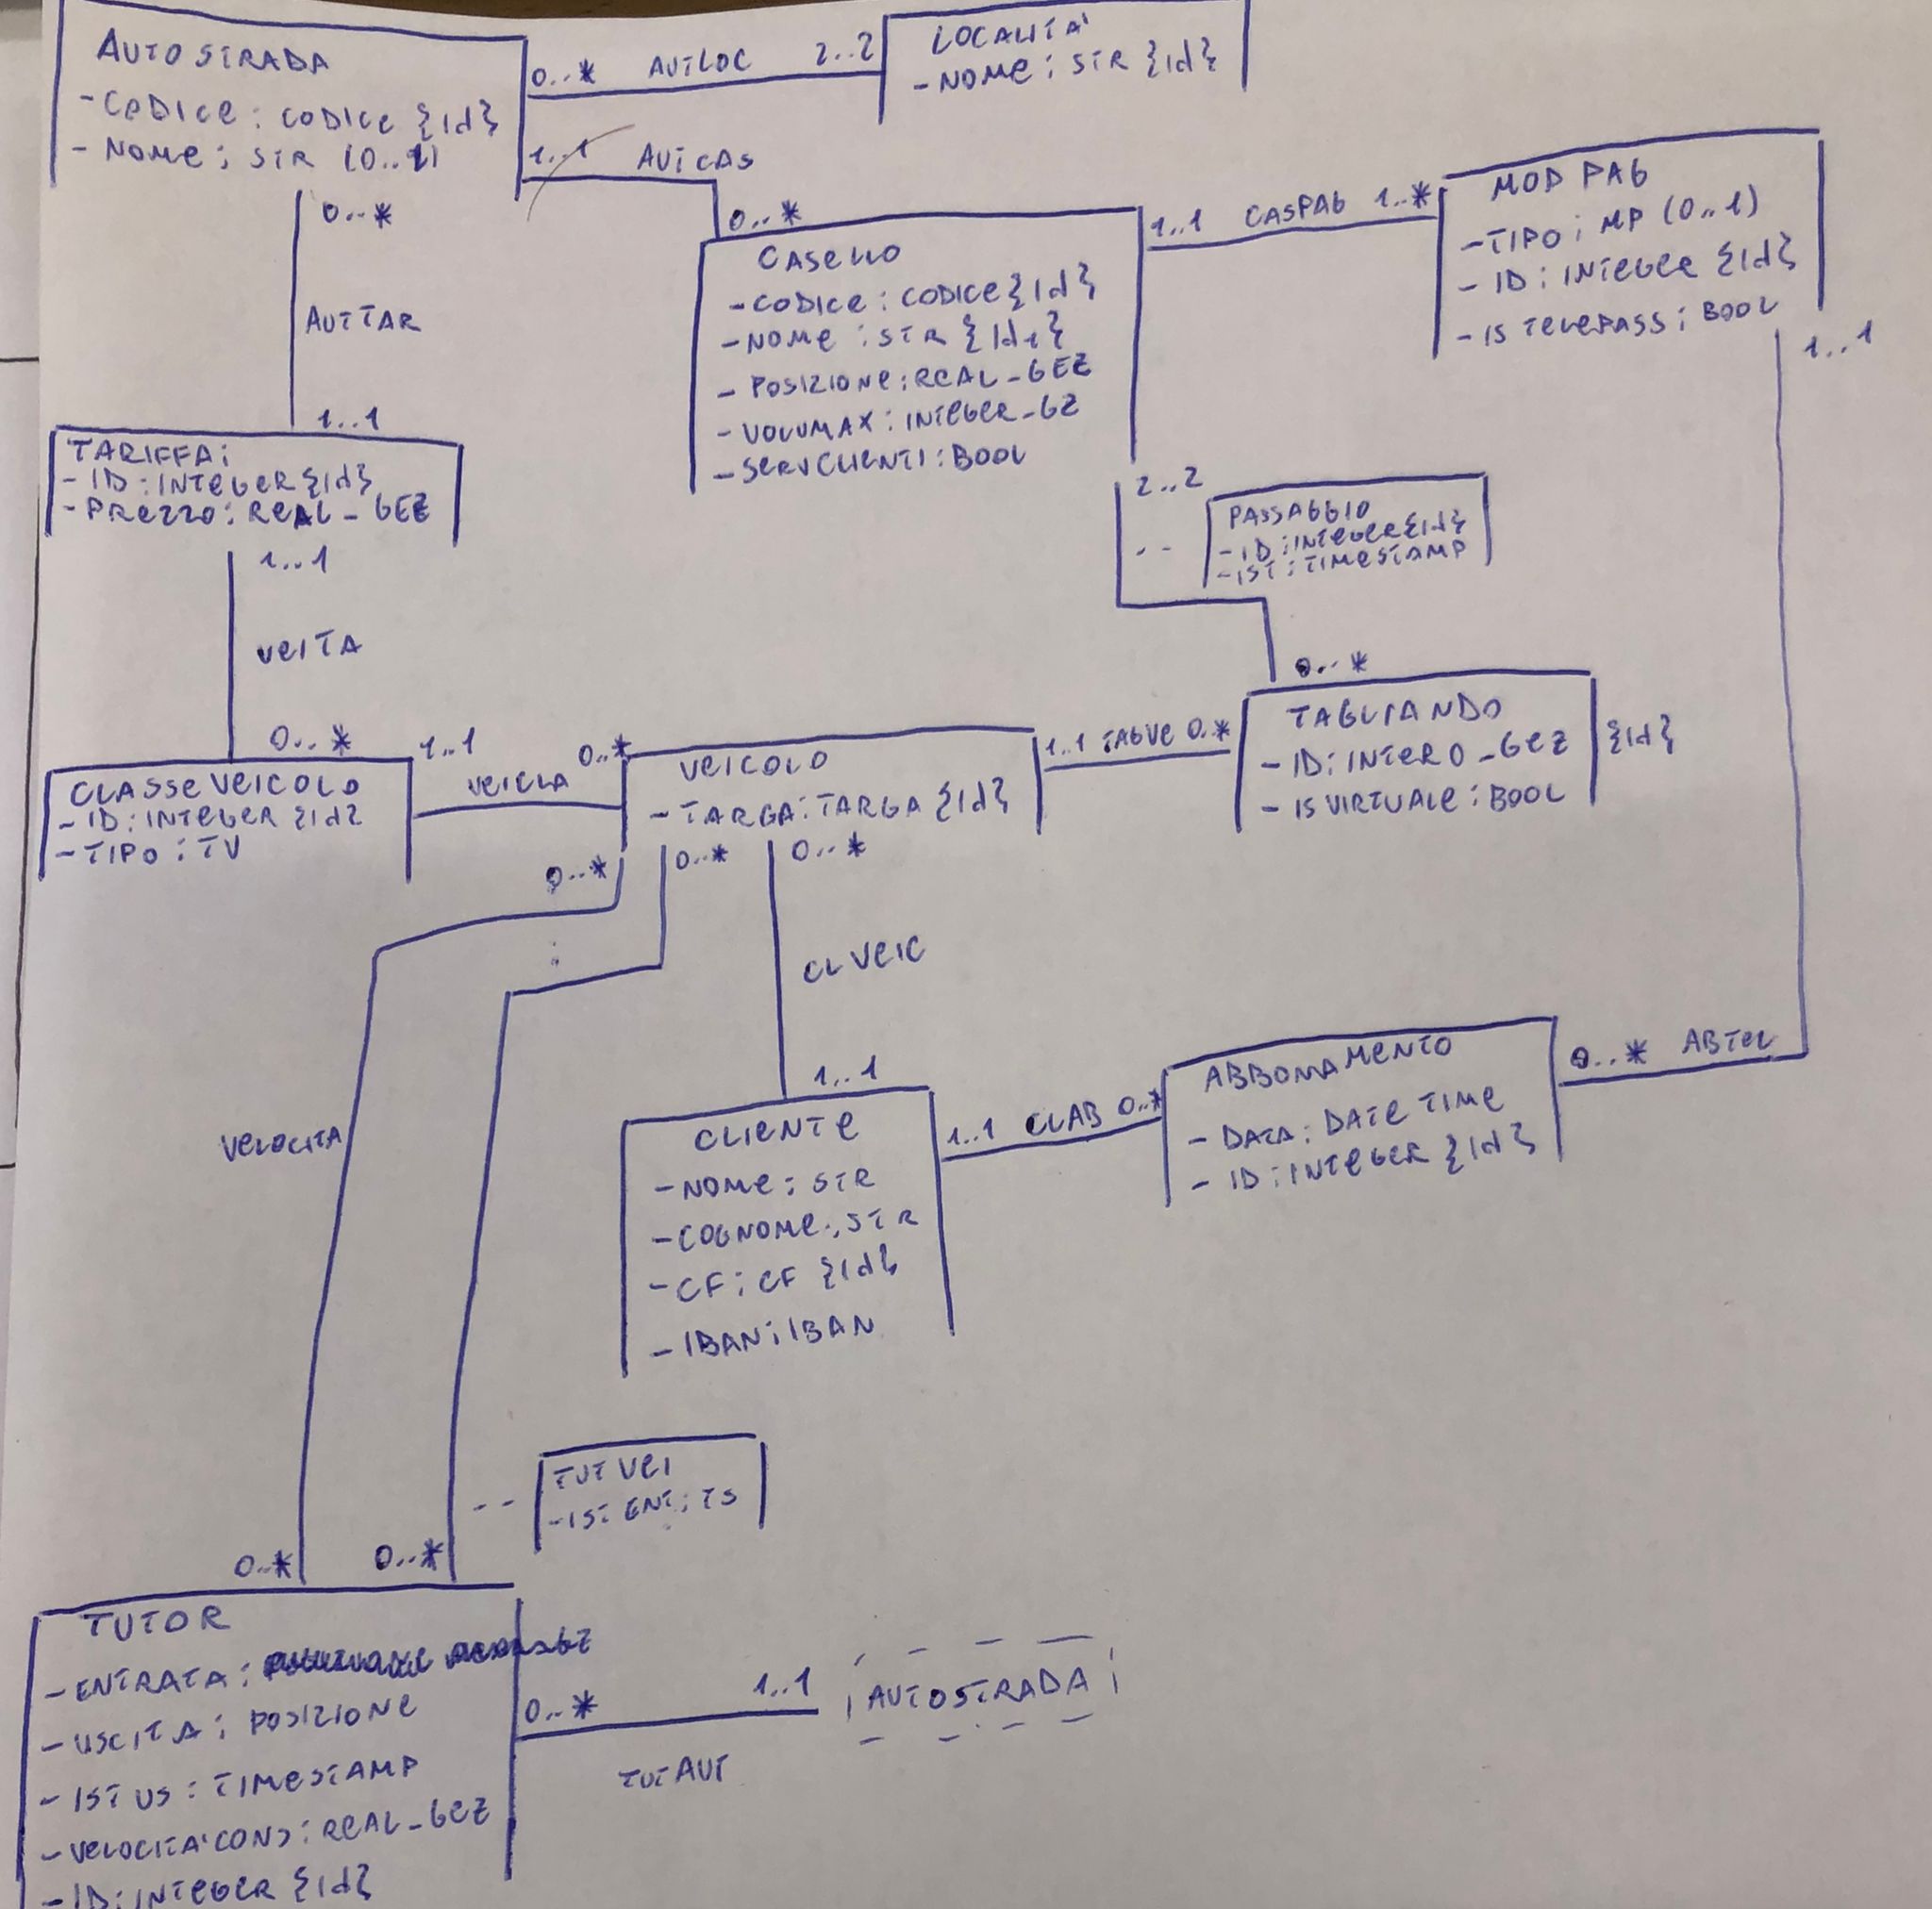 AUTOSTRADA
- CODICE : CODICE {Id}
- NOME : STR (0..1)
0..* AUTLOC 2..2
LOCALITA'
- NOME : STR {Id}
1..1 AUTCAS
0..*
0..*
AUTTAR
1..1
CASELLO
- CODICE : CODICE {Id}
- NOME : STR {Id1}
- POSIZIONE : REAL_GEZ
- VOLUMAX : INTEGER_GZ
- SERVCLIENTI : BOOL
1..1 CASPAG 1..*
MOD PAG
- TIPO : MP (0..1)
- ID : INTEGER {Id}
- IS TELEPASS : BOOL
1..1
TARIFFA :
- ID : INTEGER {Id}
- PREZZO : REAL_GEZ
1..1
VEITA
0..*
2..2
PASSAGGIO
- ID : INTEGER {Id}
- IST : TIMESTAMP
0..*
CLASSE VEICOLO
- ID : INTEGER {Id}
- TIPO : TV
1..1 VEICLA 0..*
VEICOLO
- TARGA : TARGA {Id}
1..1 TAGVE 0..*
TAGLIANDO
- ID : INTERO_GEZ
- IS VIRTUALE : BOOL
{Id}
0..*
0..*
0..*
CLVEIC
1..1
VELOCITA
CLIENTE
- NOME : STR
- COGNOME : STR
- CF : CF {Id}
- IBAN : IBAN
1..1 CLAB 0..*
ABBONAMENTO
- DATA : DATE TIME
- ID : INTEGER {Id}
0..* ABTEL
TUTVEI
- IST ENT : TS
0..*
0..*
TUTOR
- ENTRATA :
- USCITA : POSIZIONE
- IST US : TIMESTAMP
- VELOCITA'CONS : REAL_GEZ
- ID : INTEGER {Id}
0..* 1..1
TUTAUT
AUTOSTRADA